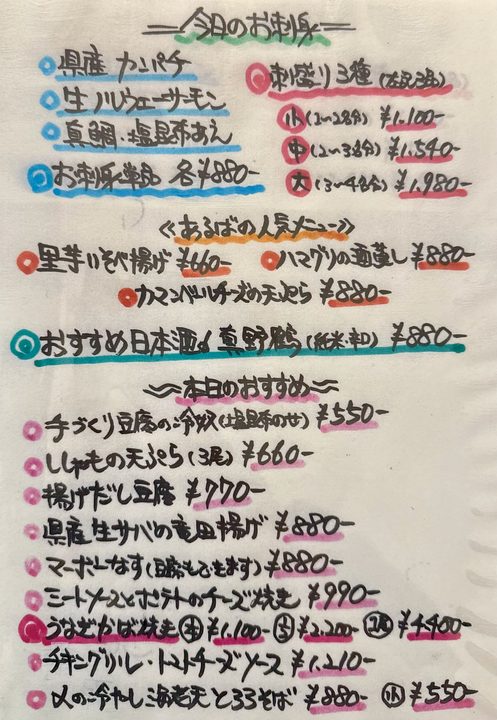 今日のお刺身
県産 カンパチ
生ノルウェーサーモン
真鯛・塩昆布あえ
お刺身単品 各¥880-
刺盛り3種
小(1~2名分) ¥1.100-
中(2~3名分) ¥1.540-
大(3~4名分) ¥1.980-
《あるばの人気メニュー》
里芋いそべ揚げ ¥660- ハマグリの酒蒸し ¥880-
カマンベールチーズの天ぷら ¥880-
おすすめ日本酒 真野鶴(純米・辛口) ¥880-
本日のおすすめ
手づくり豆腐の冷奴(塩昆布のせ) ¥550-
ししゃもの天ぷら(3尾) ¥660-
揚げだし豆腐 ¥770-
県産生サバの竜田揚げ ¥880-
マーボーなす(豆腐もできます) ¥880-
ミートソースとポテトのチーズ焼き ¥990-
うなぎかば焼き ¥1.100- ¥2.200- ¥4.400-
チキングリル・トマトチーズソース ¥1.210-
〆の冷やし海老天とろろそば ¥880- 小 ¥550-